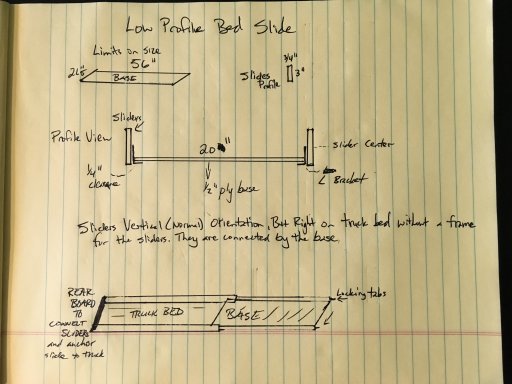 Low Profile Bed Slide
Limits on size
56"
BASE
3/4"
3"
Slides
Profile
Sliders
Profile View
20 "
Slider Center
1/4"
1/2" ply base
L Bracket
Sliders Vertical (Normal) Orientation, But Right on truck bed without a frame
for the sliders. They are connected by the base.
REAR
BOARD
TO
CONNECT
SLIDERS
and anchor
slide to truck
TRUCK BED
BASE
Locking tabs